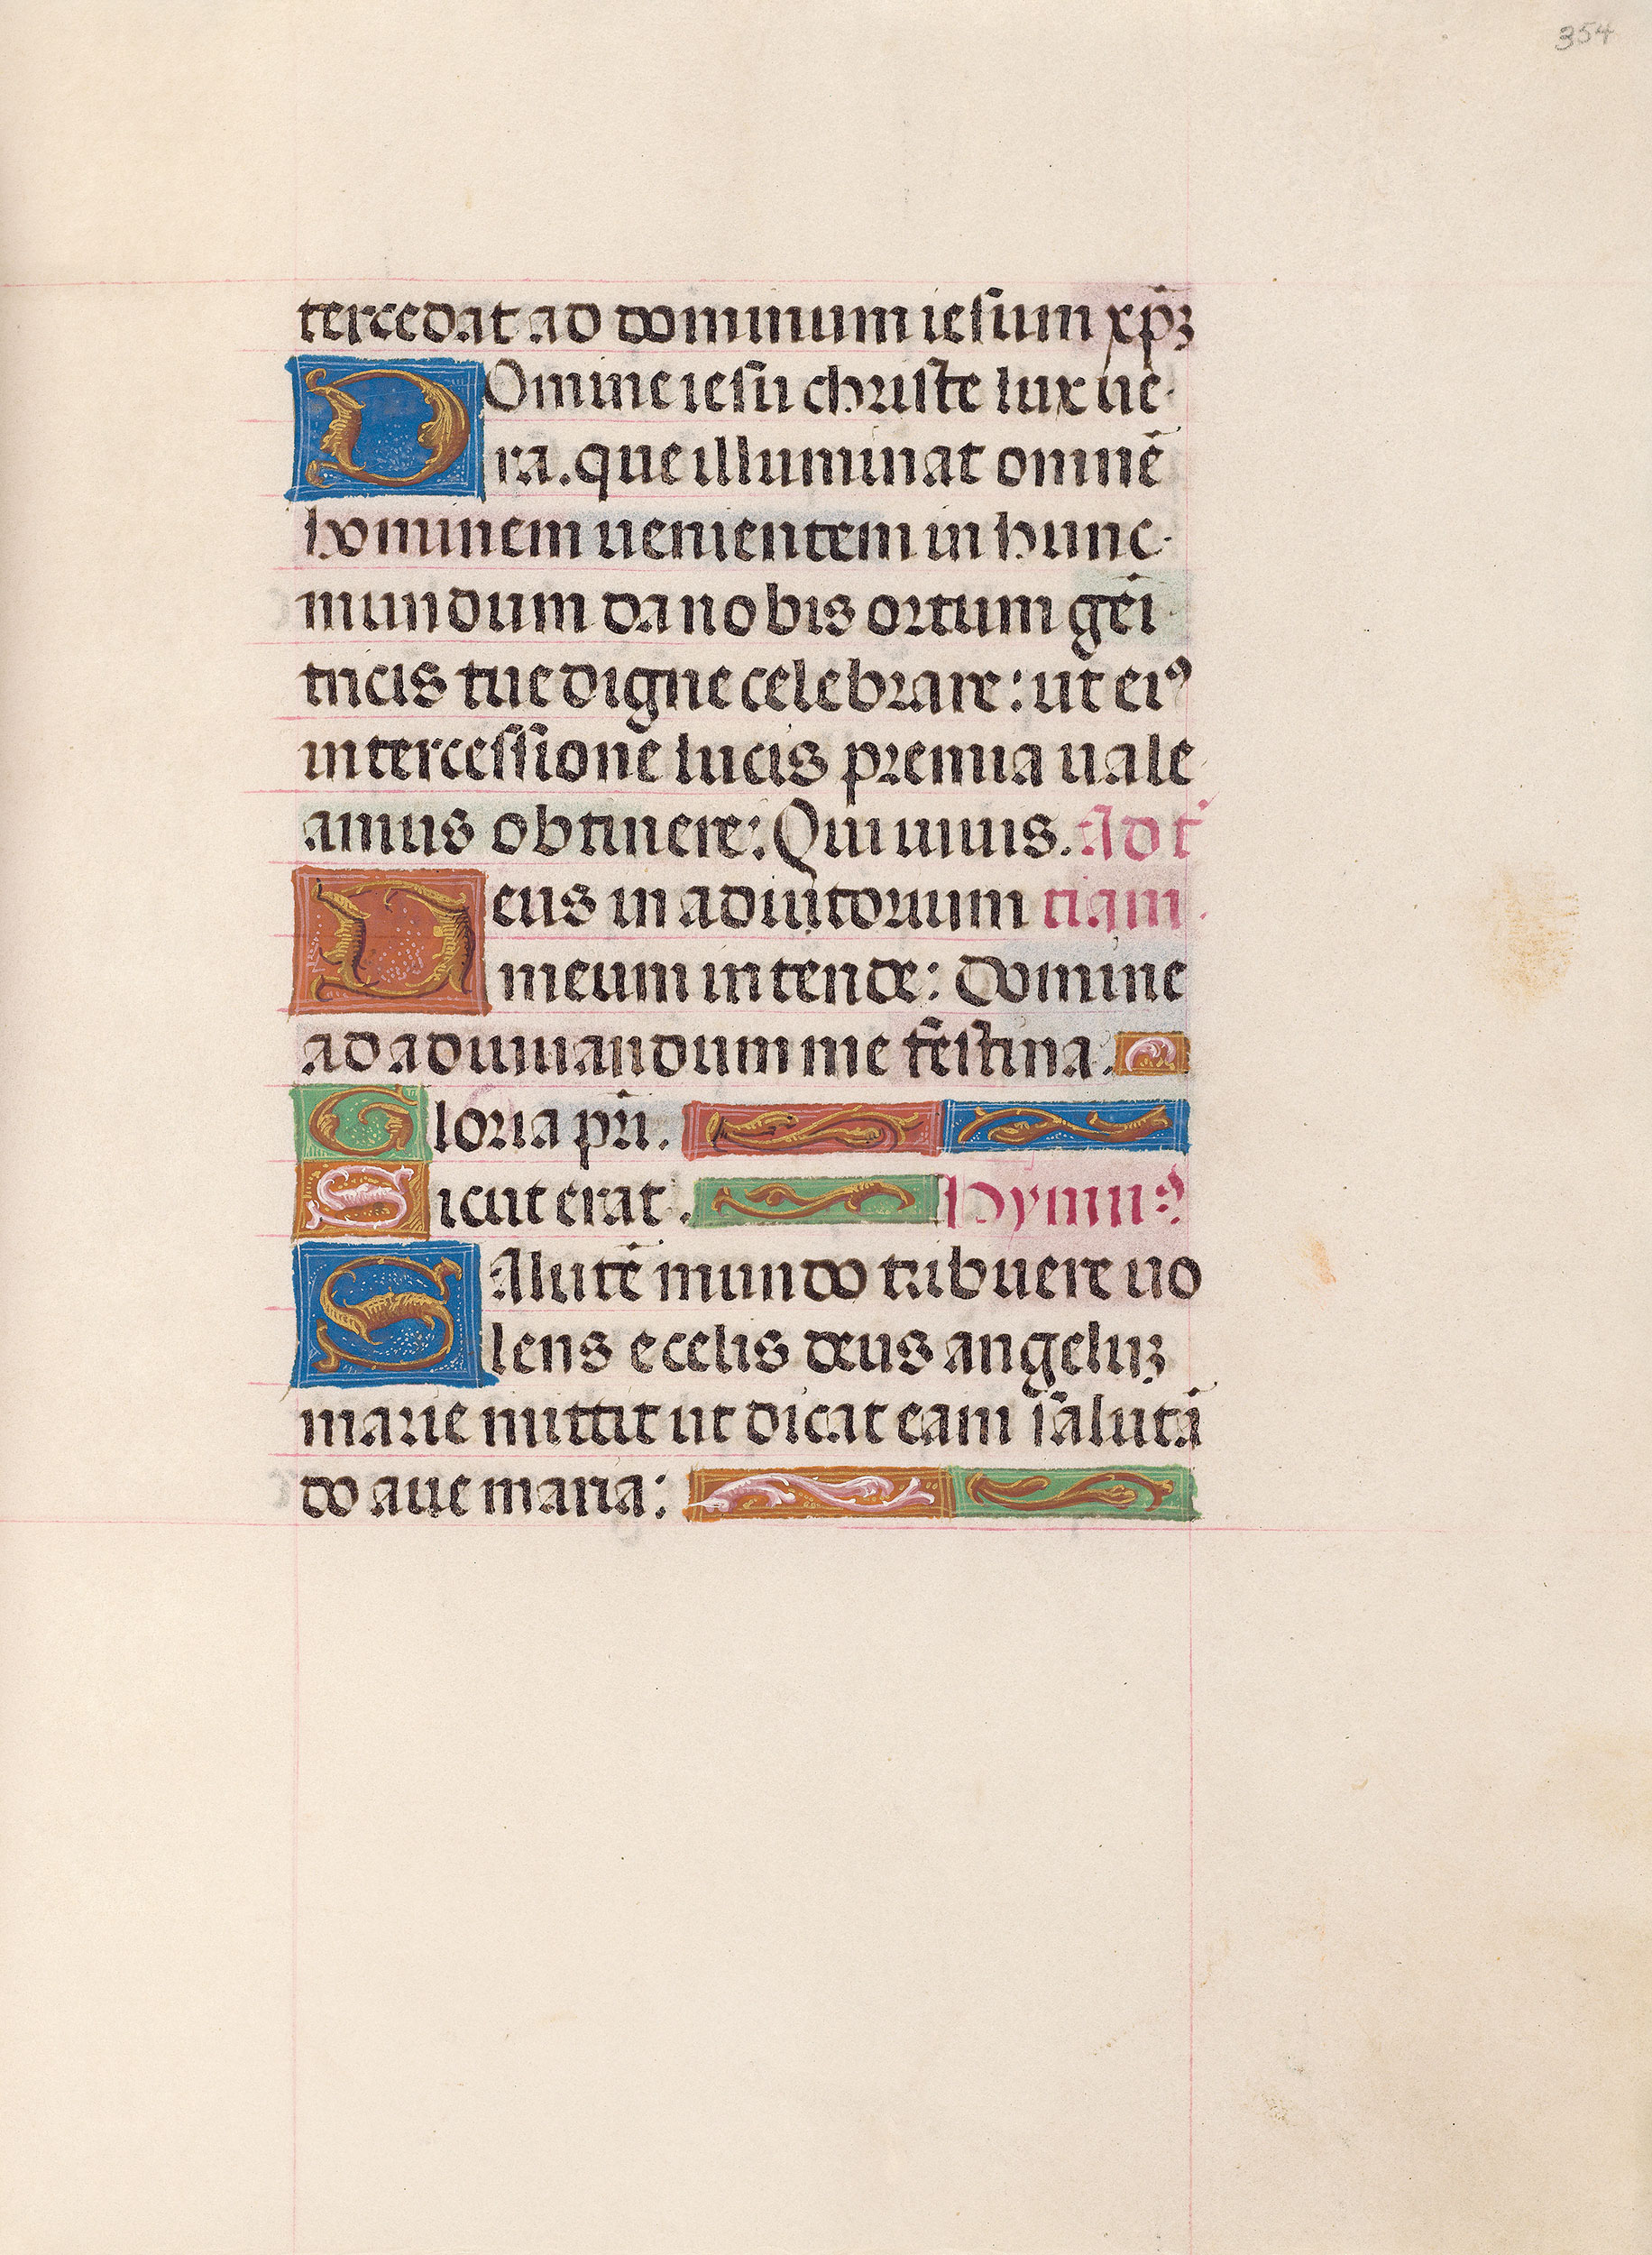 354
tercedat ad dominum iesum xp̄ꝫ
Domine iesu christe lux ue
ra. que illuminat omnē
hominem uenientem in hunc
mundum da nobis ortum gēi
tricis tue digne celebrare: ut eiꝰ
intercessione lucis premia uale
amus obtinere: Qui uiuis. Ad t̄
Deus in adiutorium tiam.
meum intende: Domine
ad adiuuandum me festina.
Gloria pr̄i.
Sicut erat. Hymnꝰ
Salutē mundo tribuere uo
lens e celis deus angeluꝫ
marie mittit ut dicat eam salutā
do aue maria: